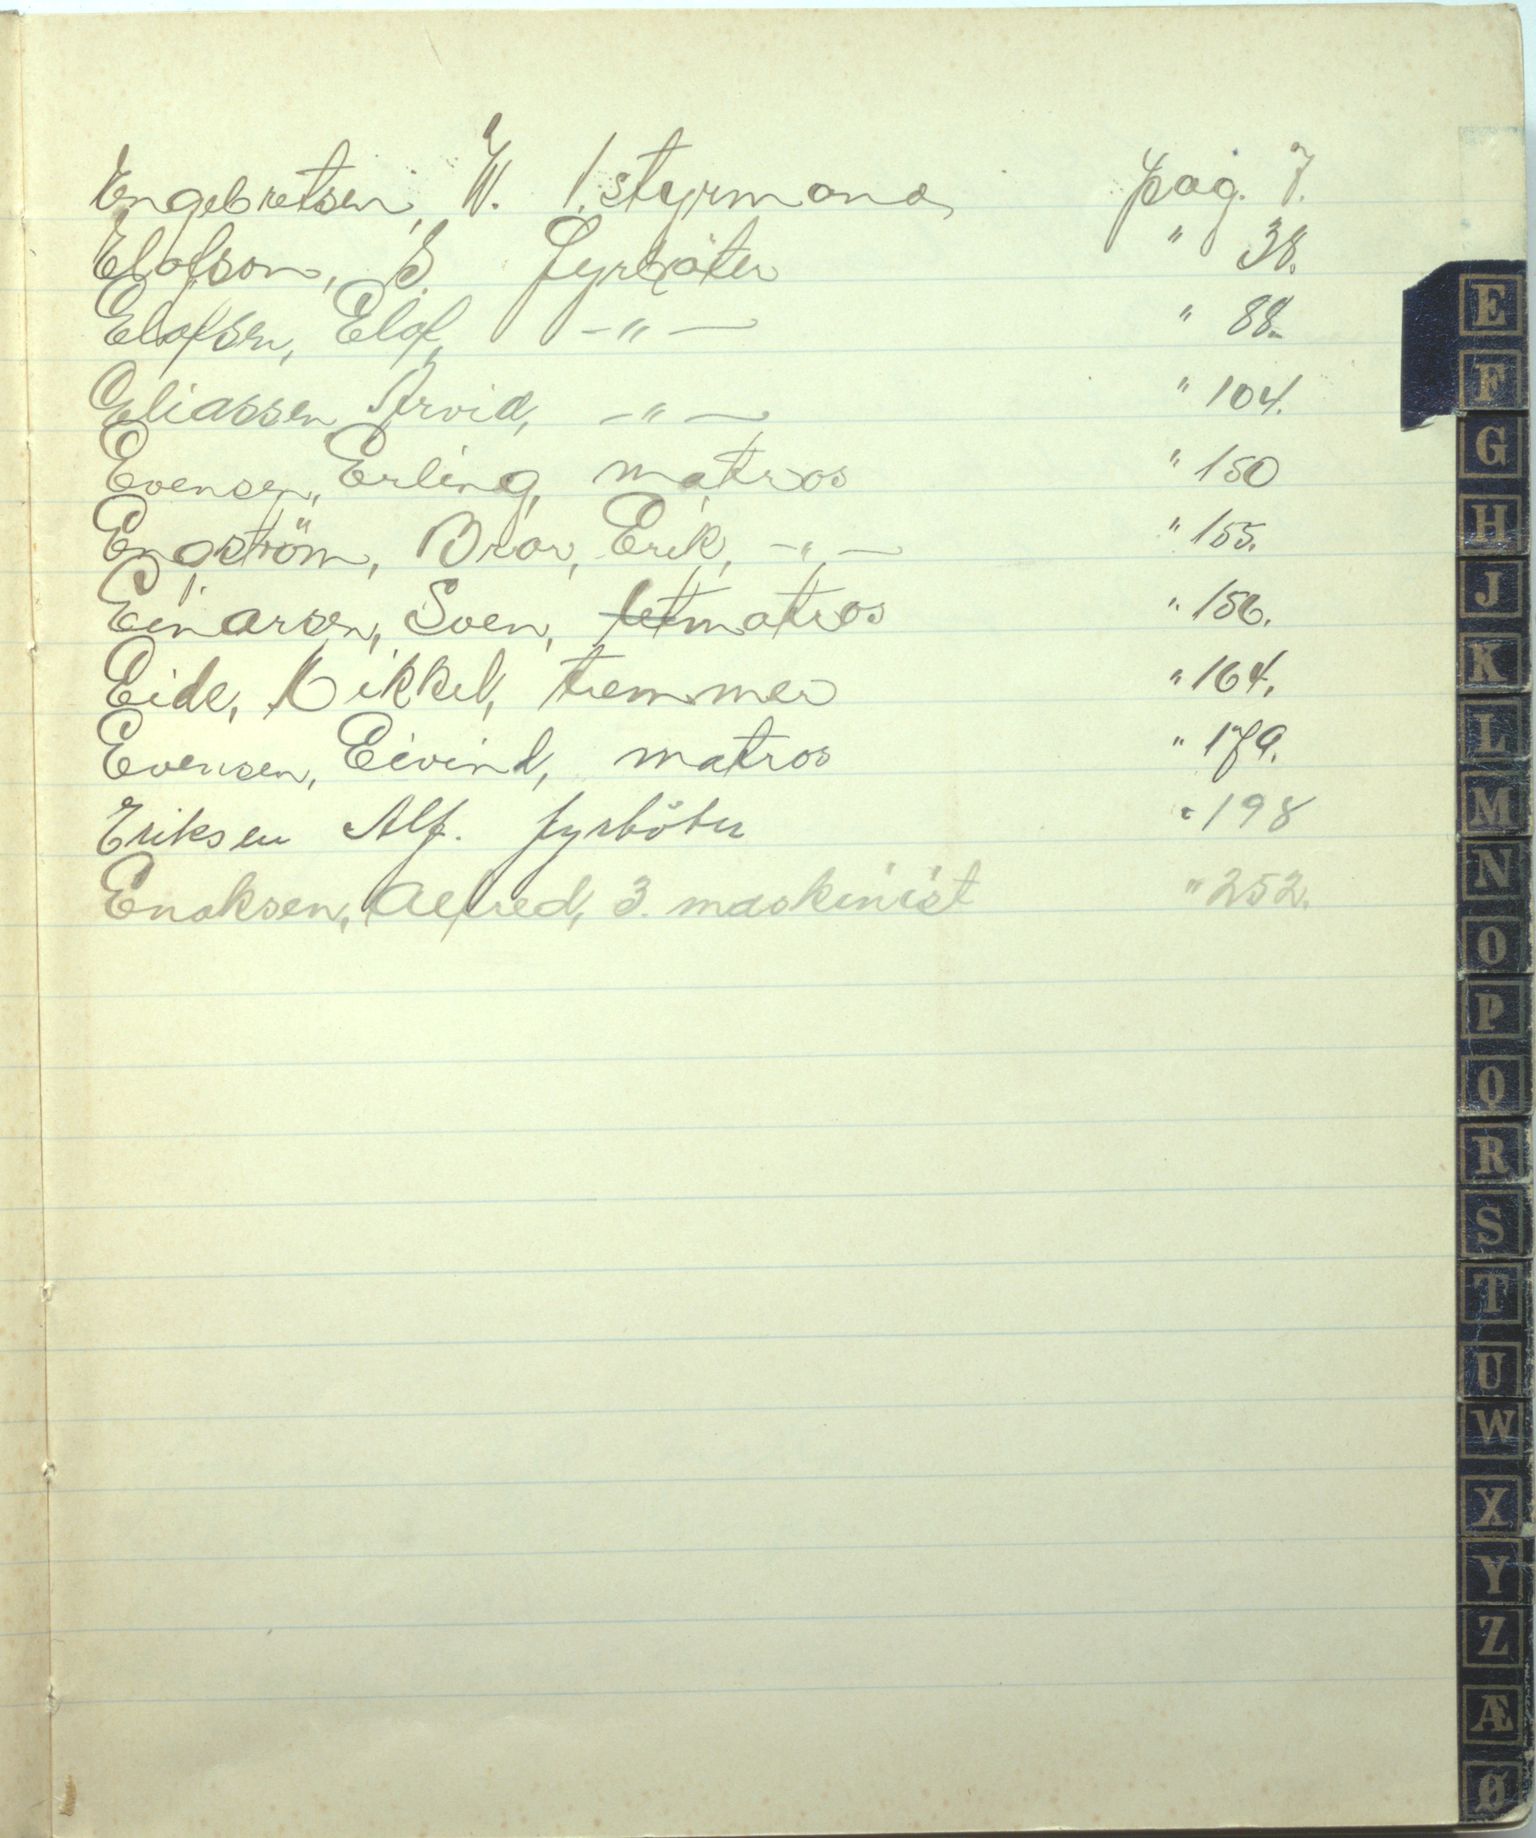 Engebretsen, W. 1. styrmand, pag. 7.
Elofson, S. Fyrbøter " 38.
Elofsen, Elof, —"— " 88.
Eliassen Arvid, —"— " 104.
Evensen, Erling, matros " 150
Engström, Bror, Erik, —"— " 155.
Einarsen, Sven, letmatros " 156.
Eide, Mikkel, tremmer " 164.
Evensen, Eivind, matros " 179.
Eriksen Alf. fyrböter " 198
Enoksen, Alfred, 3. maskinist " 252.
E
F
G
H
J
K
L
M
N
O
P
Q
R
S
T
U
W
X
Y
Z
Æ
Ø